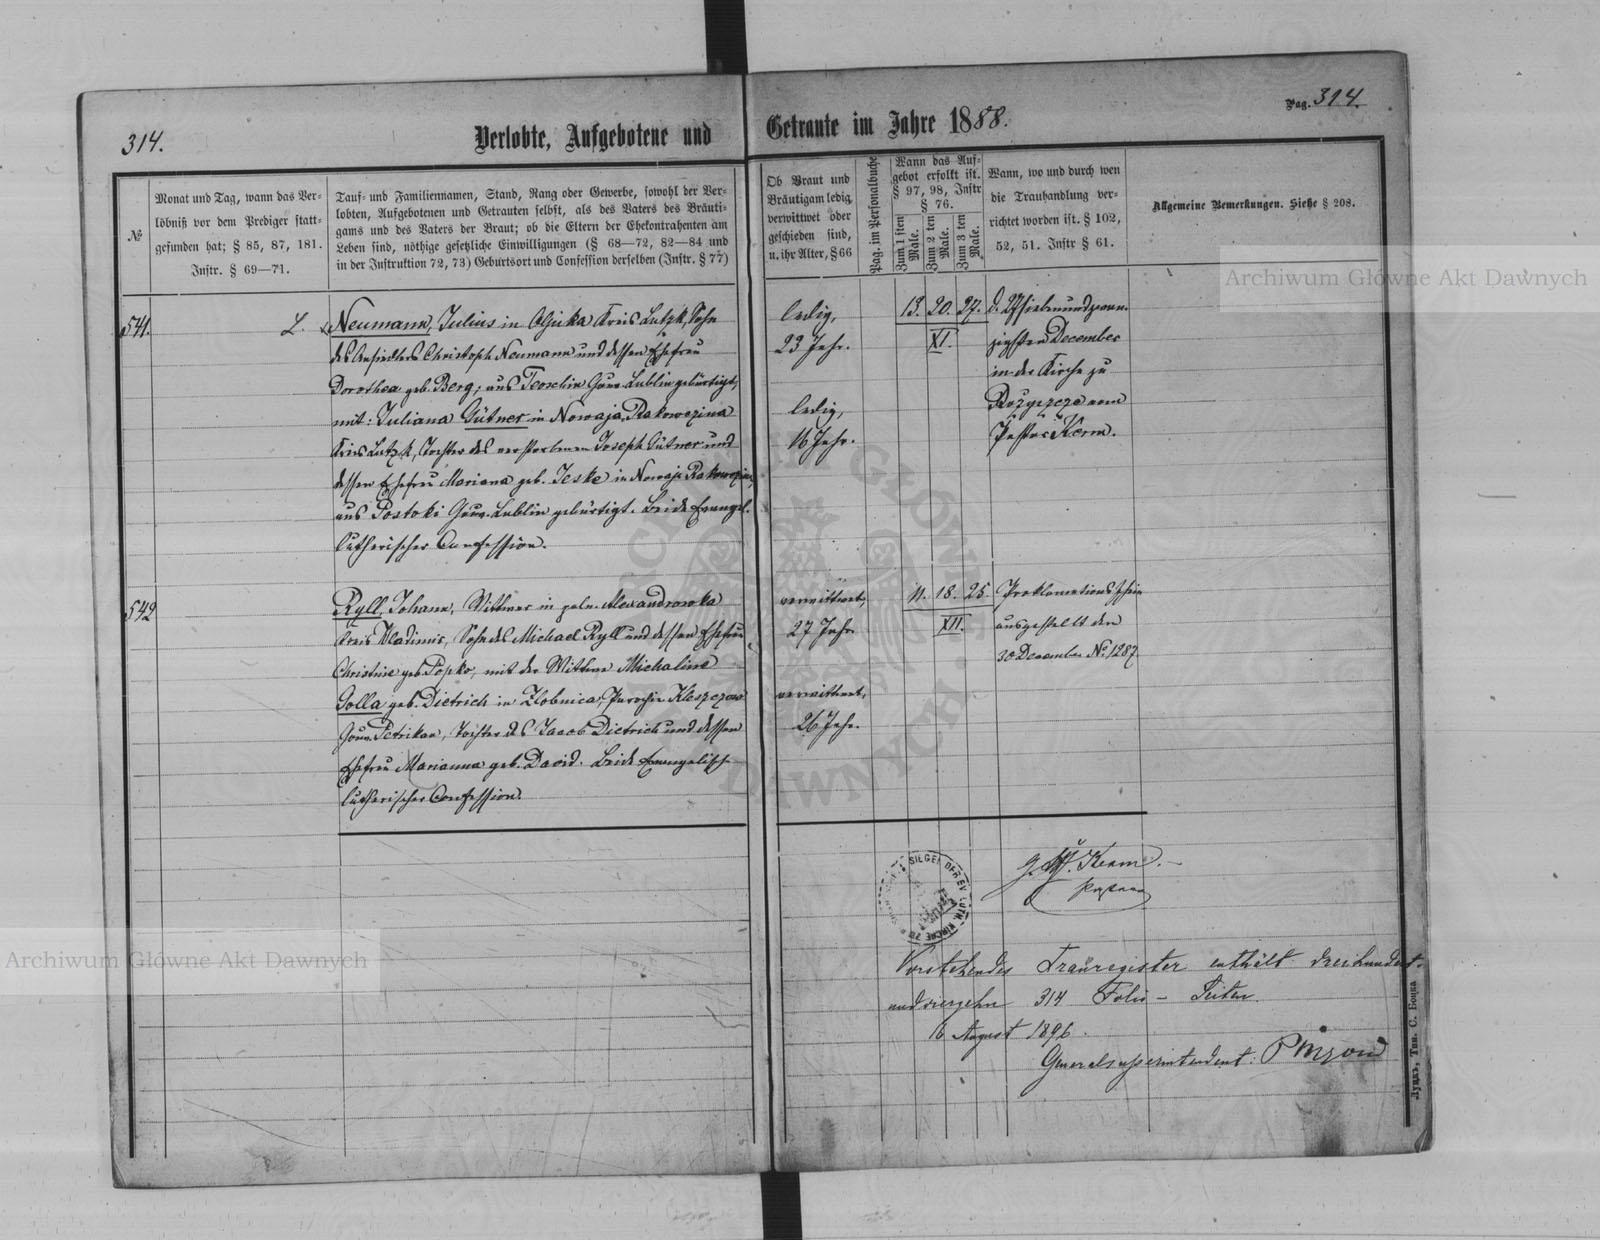 314.
Verlobte, Aufgebotene und
Getraute im Jahre 1888.
Pag. 314.
№
Monat und Tag, wann das Ver-
löbniß vor dem Prediger statt-
gefunden hat; § 85, 87, 181.
Instr. § 69—71.
Tauf- und Familiennamen, Stand, Rang oder Gewerbe, sowohl der Ver-
lobten, Aufgebotenen und Getrauten selbst, als des Vaters des Bräuti-
gams und des Vaters der Braut; ob die Eltern der Ehekontrahenten am
Leben sind, nöthige gesetzliche Einwilligungen (§ 68—72, 82—84 und
in der Instruktion 72, 73) Geburtsort und Confession derselben (Instr. § 77)
Ob Braut und
Bräutigam ledig,
verwittwet oder
geschieden sind,
u. ihr Alter, § 66
Pag. im Personalbuche
Wann das Auf-
gebot erfolkt ist.
§ 97, 98, Instr
§ 76.
Zum 1 sten
Male.
Zum 2 ten
Male.
Zum 3 ten
Male.
Wann, wo und durch wen
die Trauhandlung ver-
richtet worden ist. § 102,
52, 51. Instr § 61.
Allgemeine Bemerkungen. Siehe § 208.
541.
L.
Neumann, Julius in Olyka Kreis Lutzk, Sohn
des Ansiedlers Christoph Neumann und dessen Ehefrau
Dorothea geb. Berg; aus Teoschin Gouv. Lublin gebürtigt,
mit: Juliana Gütner in Nowaja Rakowszina
Kreis Lutzk, Tochter des verstorbenen Joseph Gütner und
dessen Ehefrau Mariana geb. Jeske in Nowaja Rakowszina,
aus Postoki Gouv. Lublin gebürtigt. Beide Evangel.
lutherischer Confession.
ledig,
23 Jahr.
ledig,
16 Jahr.
13. 20. 27.
XI.
d. 27 siebenundzwan-
zigsten December
in der Kirche zu
Rozyszcze vom
Pastor Kerm.
542
Ryll, Johann, Wittwer in Alexandrowka
Kreis Wladimir, Sohn des Michael Ryll und dessen Ehefrau
Christine geb. Popko, mit der Wittwe Michaline
Golla geb. Dietrich in Zlobnica, Parochie Kleszczow
Gouv. Petrikau, Tochter des Jacob Dietrich und dessen
Ehefrau Marianna geb. David. Beide Evangelisch
lutherischer Confession.
verwittwet,
27 Jahr.
verwittwet,
26 Jahr.
11. 18. 25.
XII.
Proklamationsschein
ausgestellt den
30 December № 1287.
Kerm.
Pastor
SIEGEL DER EV. LUTH. KIRCHE ZU
Vorstehendes Trauregister enthält dreihundert-
undvierzehn 314 Folio - Seiten.
16 August 1896.
Generalsuperintendent: Pingoud
Луцкъ, Тип. С. Бокса
Archiwum Główne Akt Dawnych
Archiwum Główne Akt Dawnych